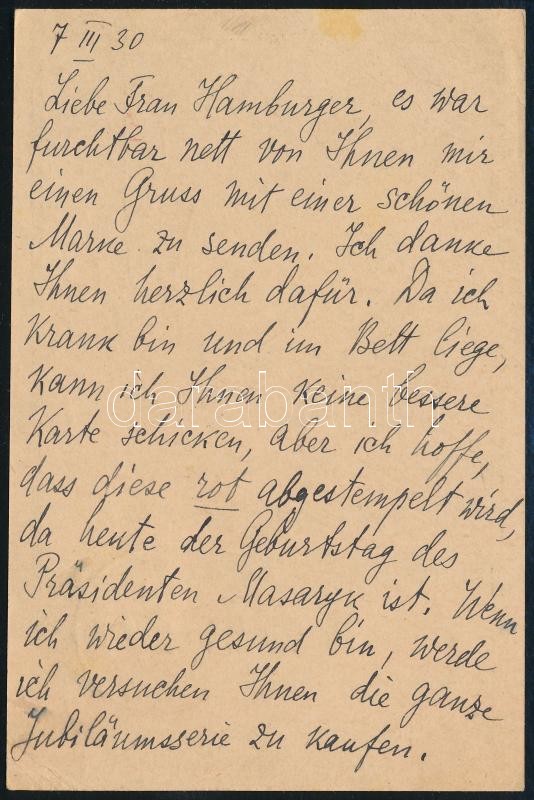 7 III 30
Liebe Frau Hamburger, es war
furchtbar nett von Ihnen mir
einen Gruss mit einer schönen
Marke zu senden. Ich danke
Ihnen herzlich dafür. Da ich
Krank bin und im Bett liege,
Kann ich Ihnen Keine bessere
Karte schicken, aber ich hoffe,
dass diese rot abgestempelt wird,
da heute der Geburtstag des
Präsidenten Masaryk ist. Wenn
ich wieder gesund bin, werde
ich versuchen Ihnen die ganze
Jubiläumsserie zu Kaufen.
darabanth